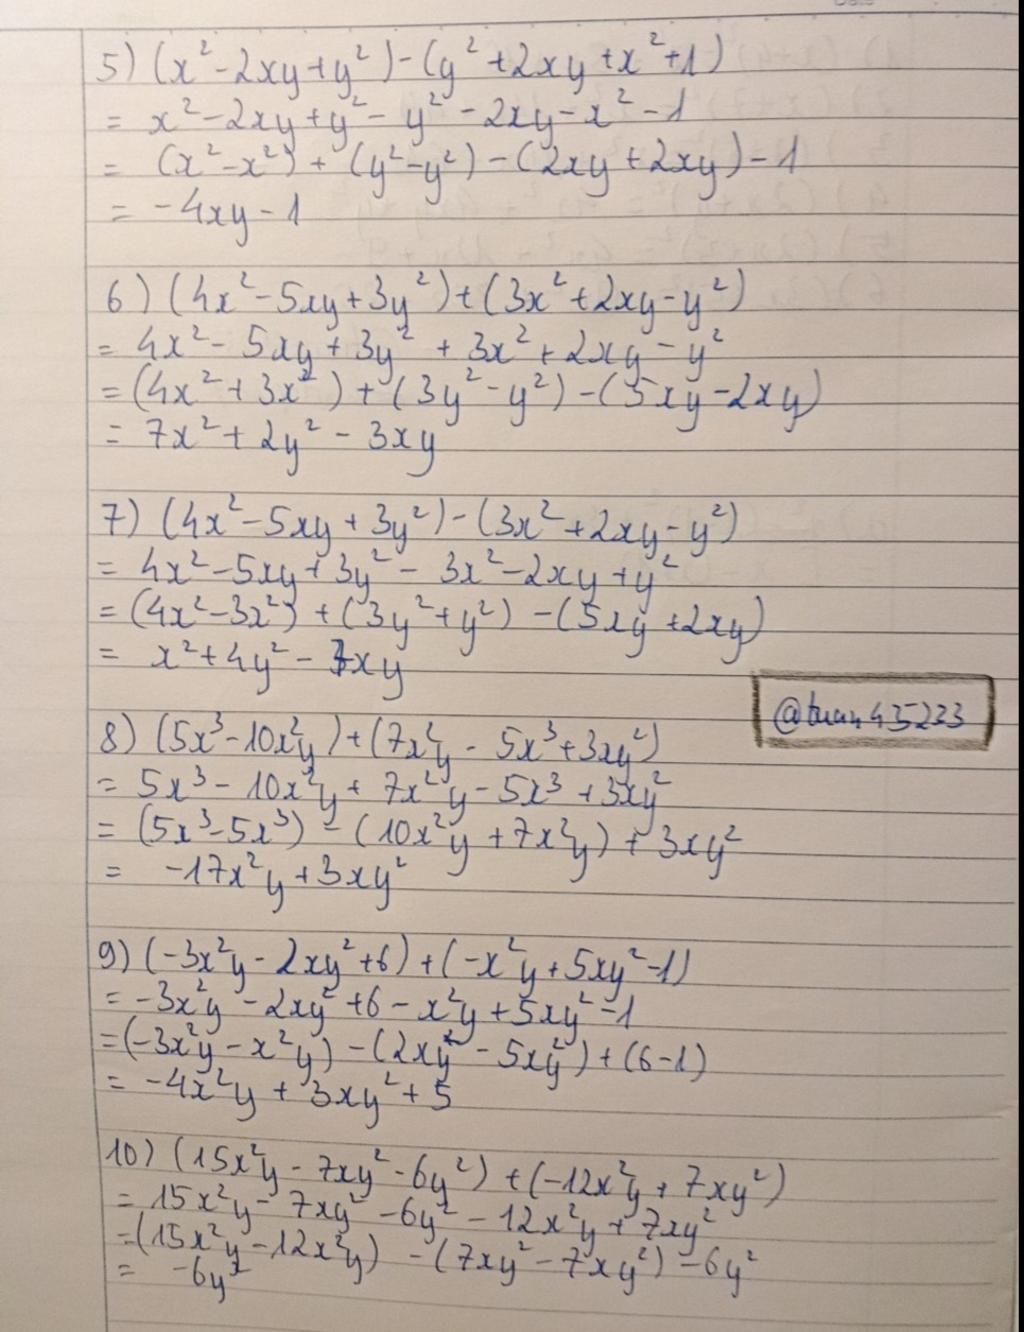 5) (x² - 2xy + y²) - (y² + 2xy + x² + 1)
= x² - 2xy + y² - y² - 2xy - x² - 1
= (x² - x²) + (y² - y²) - (2xy + 2xy) - 1
= -4xy - 1
6) (4x² - 5xy + 3y²) + (3x² + 2xy - y²)
= 4x² - 5xy + 3y² + 3x² + 2xy - y²
= (4x² + 3x²) + (3y² - y²) - (5xy - 2xy)
= 7x² + 2y² - 3xy
7) (4x² - 5xy + 3y²) - (3x² + 2xy - y²)
= 4x² - 5xy + 3y² - 3x² - 2xy + y²
= (4x² - 3x²) + (3y² + y²) - (5xy + 2xy)
= x² + 4y² - 7xy
@tuan435233
8) (5x³ - 10x²y) + (7x²y - 5x³ + 3xy²)
= 5x³ - 10x²y + 7x²y - 5x³ + 3xy²
= (5x³ - 5x³) - (10x²y + 7x²y) + 3xy²
= -17x²y + 3xy²
9) (-3x²y - 2xy² + 6) + (-x²y + 5xy² - 1)
= -3x²y - 2xy² + 6 - x²y + 5xy² - 1
= (-3x²y - x²y) - (2xy² - 5xy²) + (6 - 1)
= -4x²y + 3xy² + 5
10) (15x²y - 7xy² - 6y²) + (-12x²y + 7xy²)
= 15x²y - 7xy² - 6y² - 12x²y + 7xy²
= (15x²y - 12x²y) - (7xy² - 7xy²) - 6y²
= -6y²